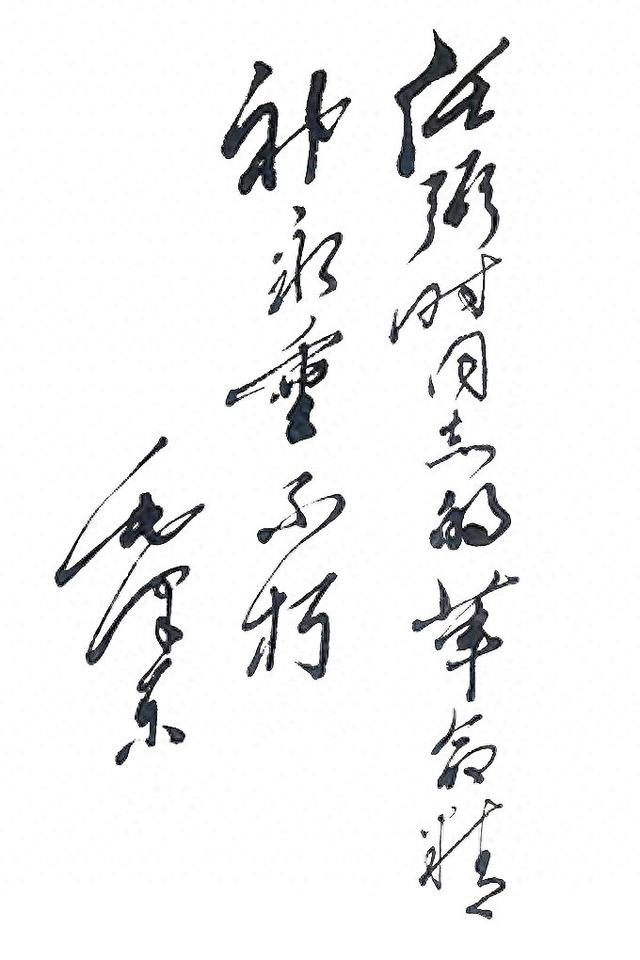 任弼时同志的革命精
神永垂不朽
毛泽东